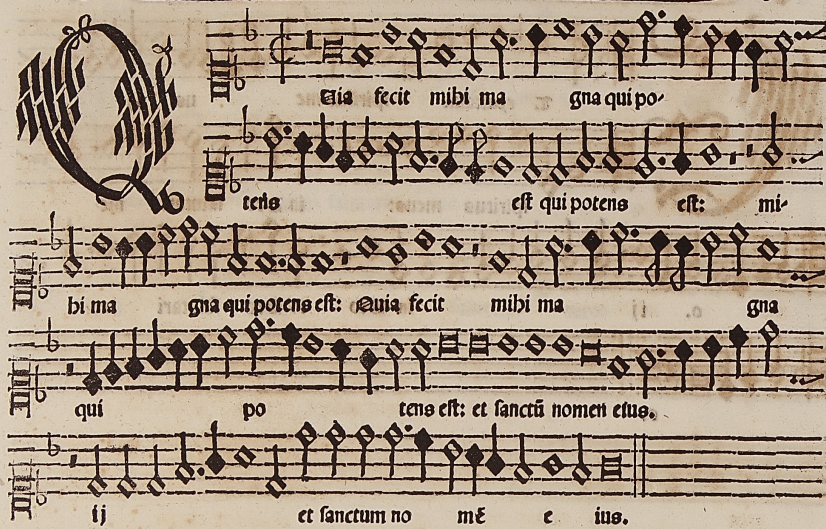 Quia fecit mihi ma gna qui po-
tens est qui potens est: mi-
hi ma gna qui potens est: Quia fecit mihi ma gna
qui po tens est: et sanctū nomen eius.
ij et sanctum no mē e ius.